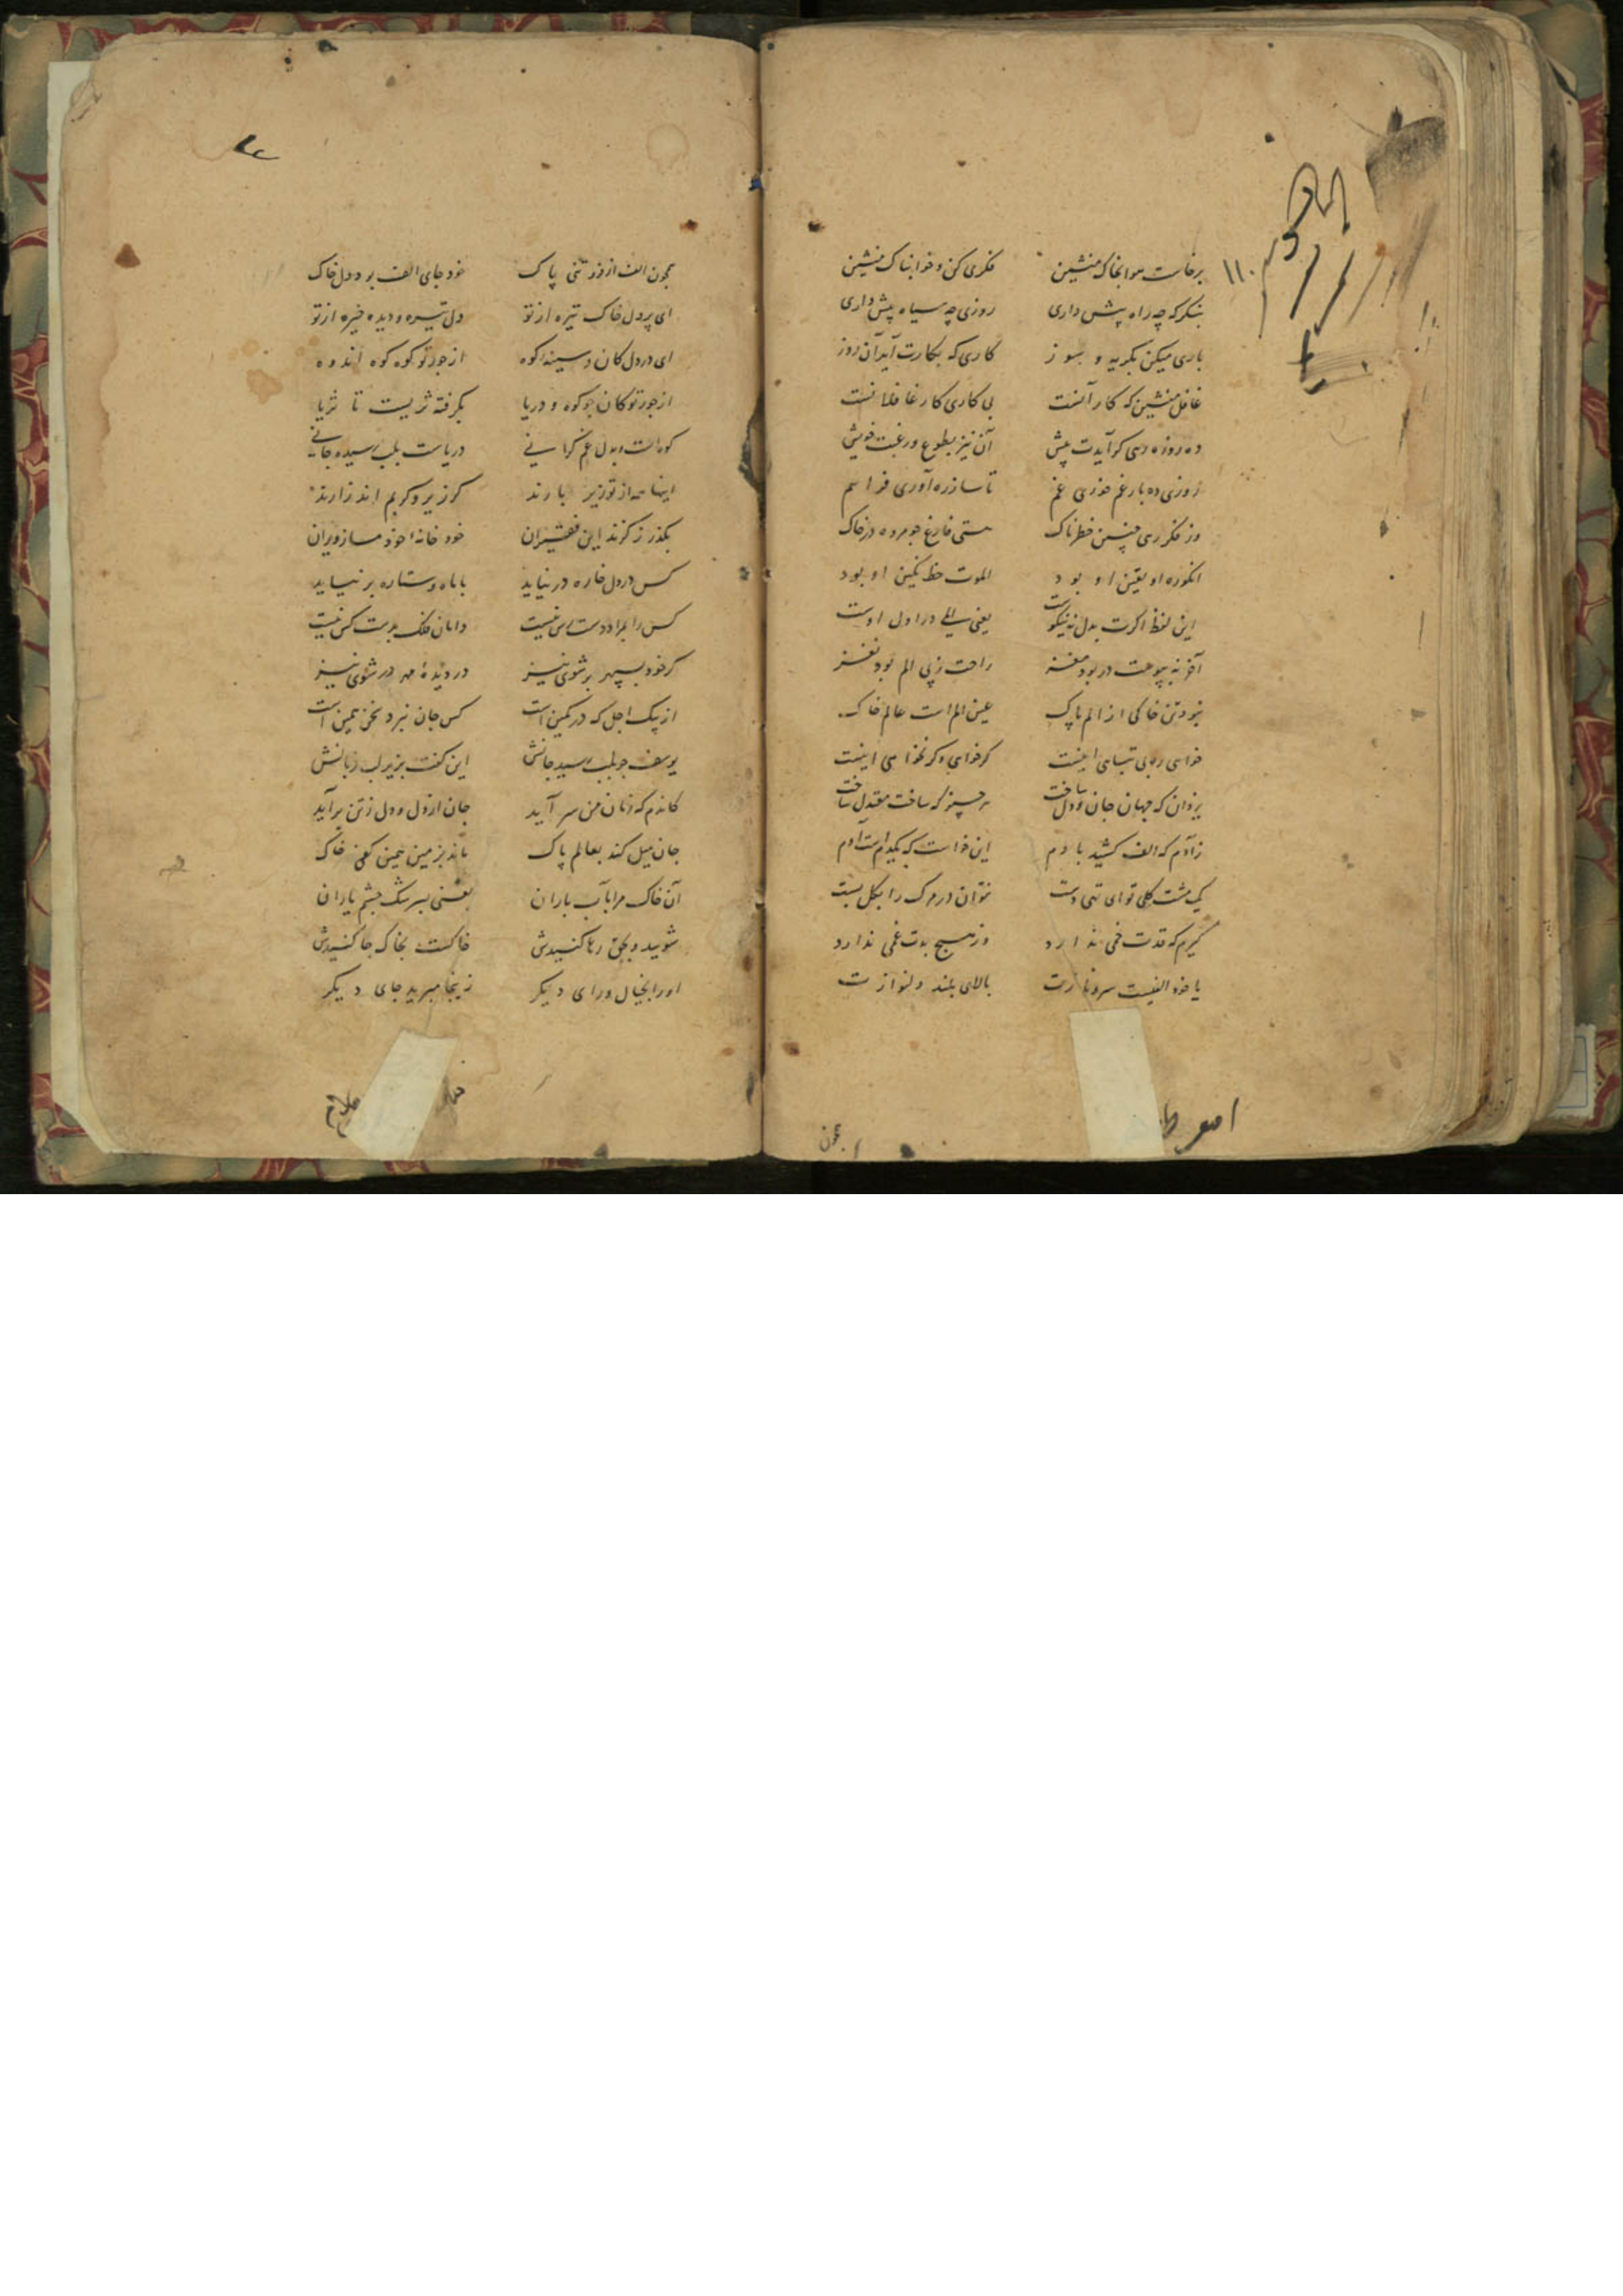 برخاست هوا بخاک منشین فکری کن و خوابناک منشین
بنگر که چه راه پیش داری روزی چه سیاه پیش داری
باری میکن بگریه و بسوز کاری که بکارت آید آن روز
غافل منشین که کار آنست بی کاری کار غافلانست
ده روزه دمی کر آیدت پیش آن نیز بطوع و رغبت خویش
روزی ده بار غم خوری غم تا ساز ره آوری فراهم
وز فکر رهی چنین خطرناک هستی فارغ چو مرده در خاک
آنکو ره او یقین او بود الموت خط نگین او بود
این لفظ اگرت بدل نه نیکوست یعنی در اول اوست
آخر نه بپوست در بود مغز راحت ز پی الم بود نغز
نبود تن خاکی از الم پاک عین الم است عالم خاک
خواهی اینست گر خواهی و گر نخواهی اینست
یزدان که جهان جان و دل ساخت هر چیز که ساخت معتدل ساخت
ز آدم که الف کشید با دم این خواست که
یک مشت گلی تو ای تهی دست نتوان در مرگ را بگل بست
گیرم که قدت خمی ندارد وز هیچ بدت غمی ندارد
یا خود الفیست سرو نازت بالای بلند دلنوازت
چون
چون الف از تنی پاک خود جای الف بود دل خاک
ای پر دل خاک تیره از تو دل تیره و دیده خیره از تو
ای در دل کان و سینه کوه از جور تو کوه کوه اندوه
از جور تو کان چو کوه و دریا بگرفته ز تا ثریا
کوه است و بدل غم گرانی دریاست بلب رسیده جانی
اینها همه از تو زیر بارند گر زیر و گر بم اند زارند
بگذر ز گزند این فقیران خود خانه خود مساز ویران
کس در دل خاره در نیاید با ماه و ستاره بر نیاید
کس را بمراد دست رس نیست دامان فلک بدست کس نیست
گر خود بسپهر بر شوی نیز در دیده مه در شوی نیز
از پیک اجل که در کمین است کس جان نبرد سخن همین است
یوسف چو بلب رسید جانش این گفت بزیر لب زبانش
کاندم که زمان من سر آید جان از دل و دل ز تن برآید
جان میل کند بعالم پاک ماند بزمین همین کفی خاک
آن خاک مرا بآب باران یعنی بسرشک چشم یاران
شویید و بحق رها کنیدش خاکست بخاک جا کنیدش
او را بخیال و رای دیگر زینجا مبرید جای دیگر